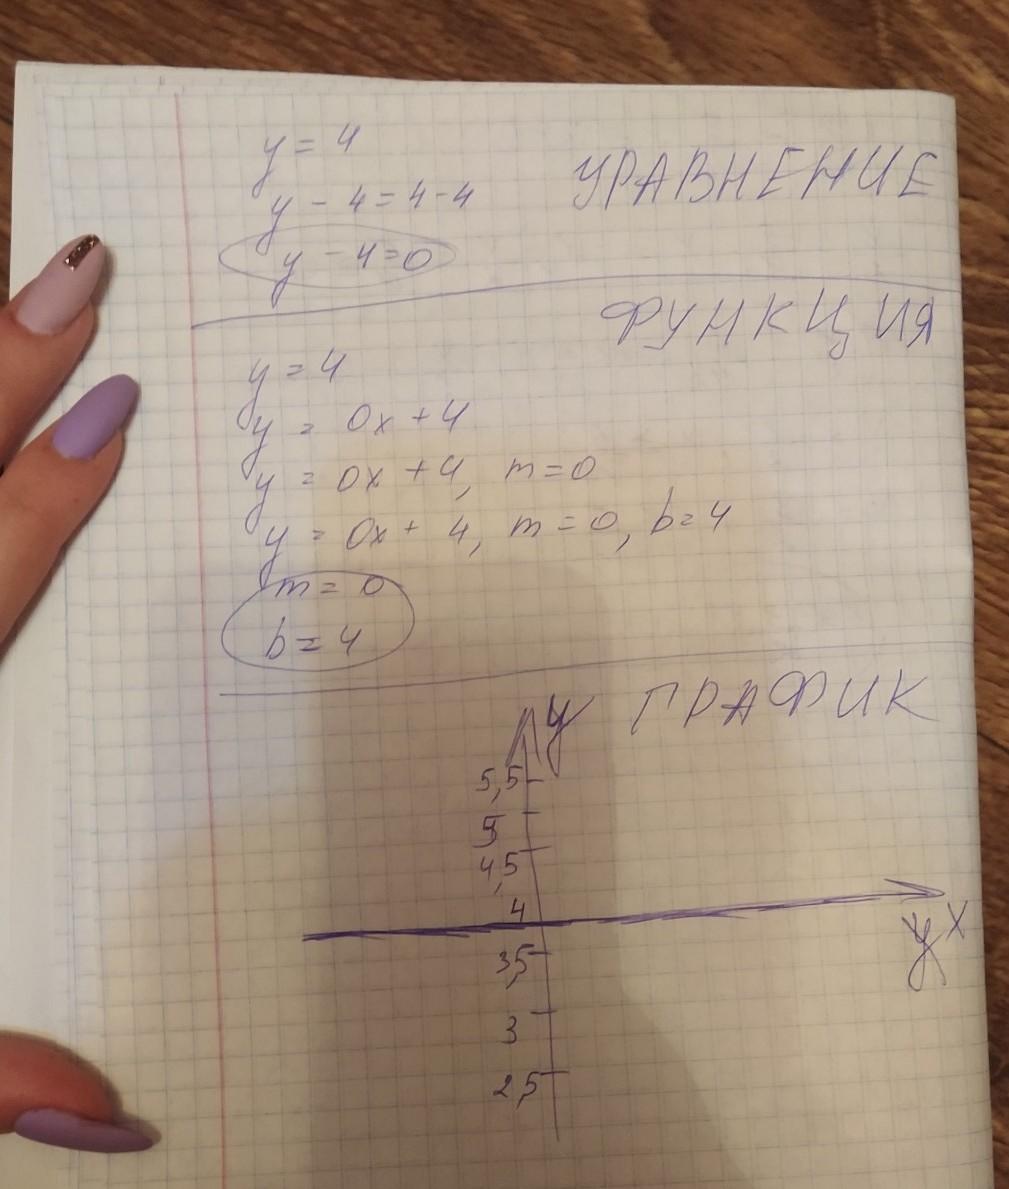 y = 4
y - 4 = 4 - 4
УРАВНЕНИЕ
y - 4 = 0
ФУНКЦИЯ
y = 4
y = 0x + 4
y = 0x + 4, m = 0
y = 0x + 4, m = 0, b = 4
m = 0
b = 4
ГРАФИК
y
5,5
5
4,5
4
x
y
3,5
3
2,5